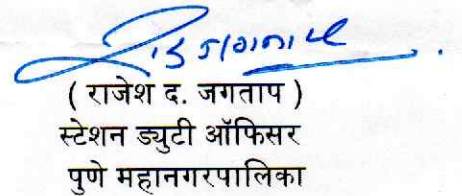 ( राजेश द. जगताप )
स्टेशन ड्युटी ऑफिसर
पुणे महानगरपालिका